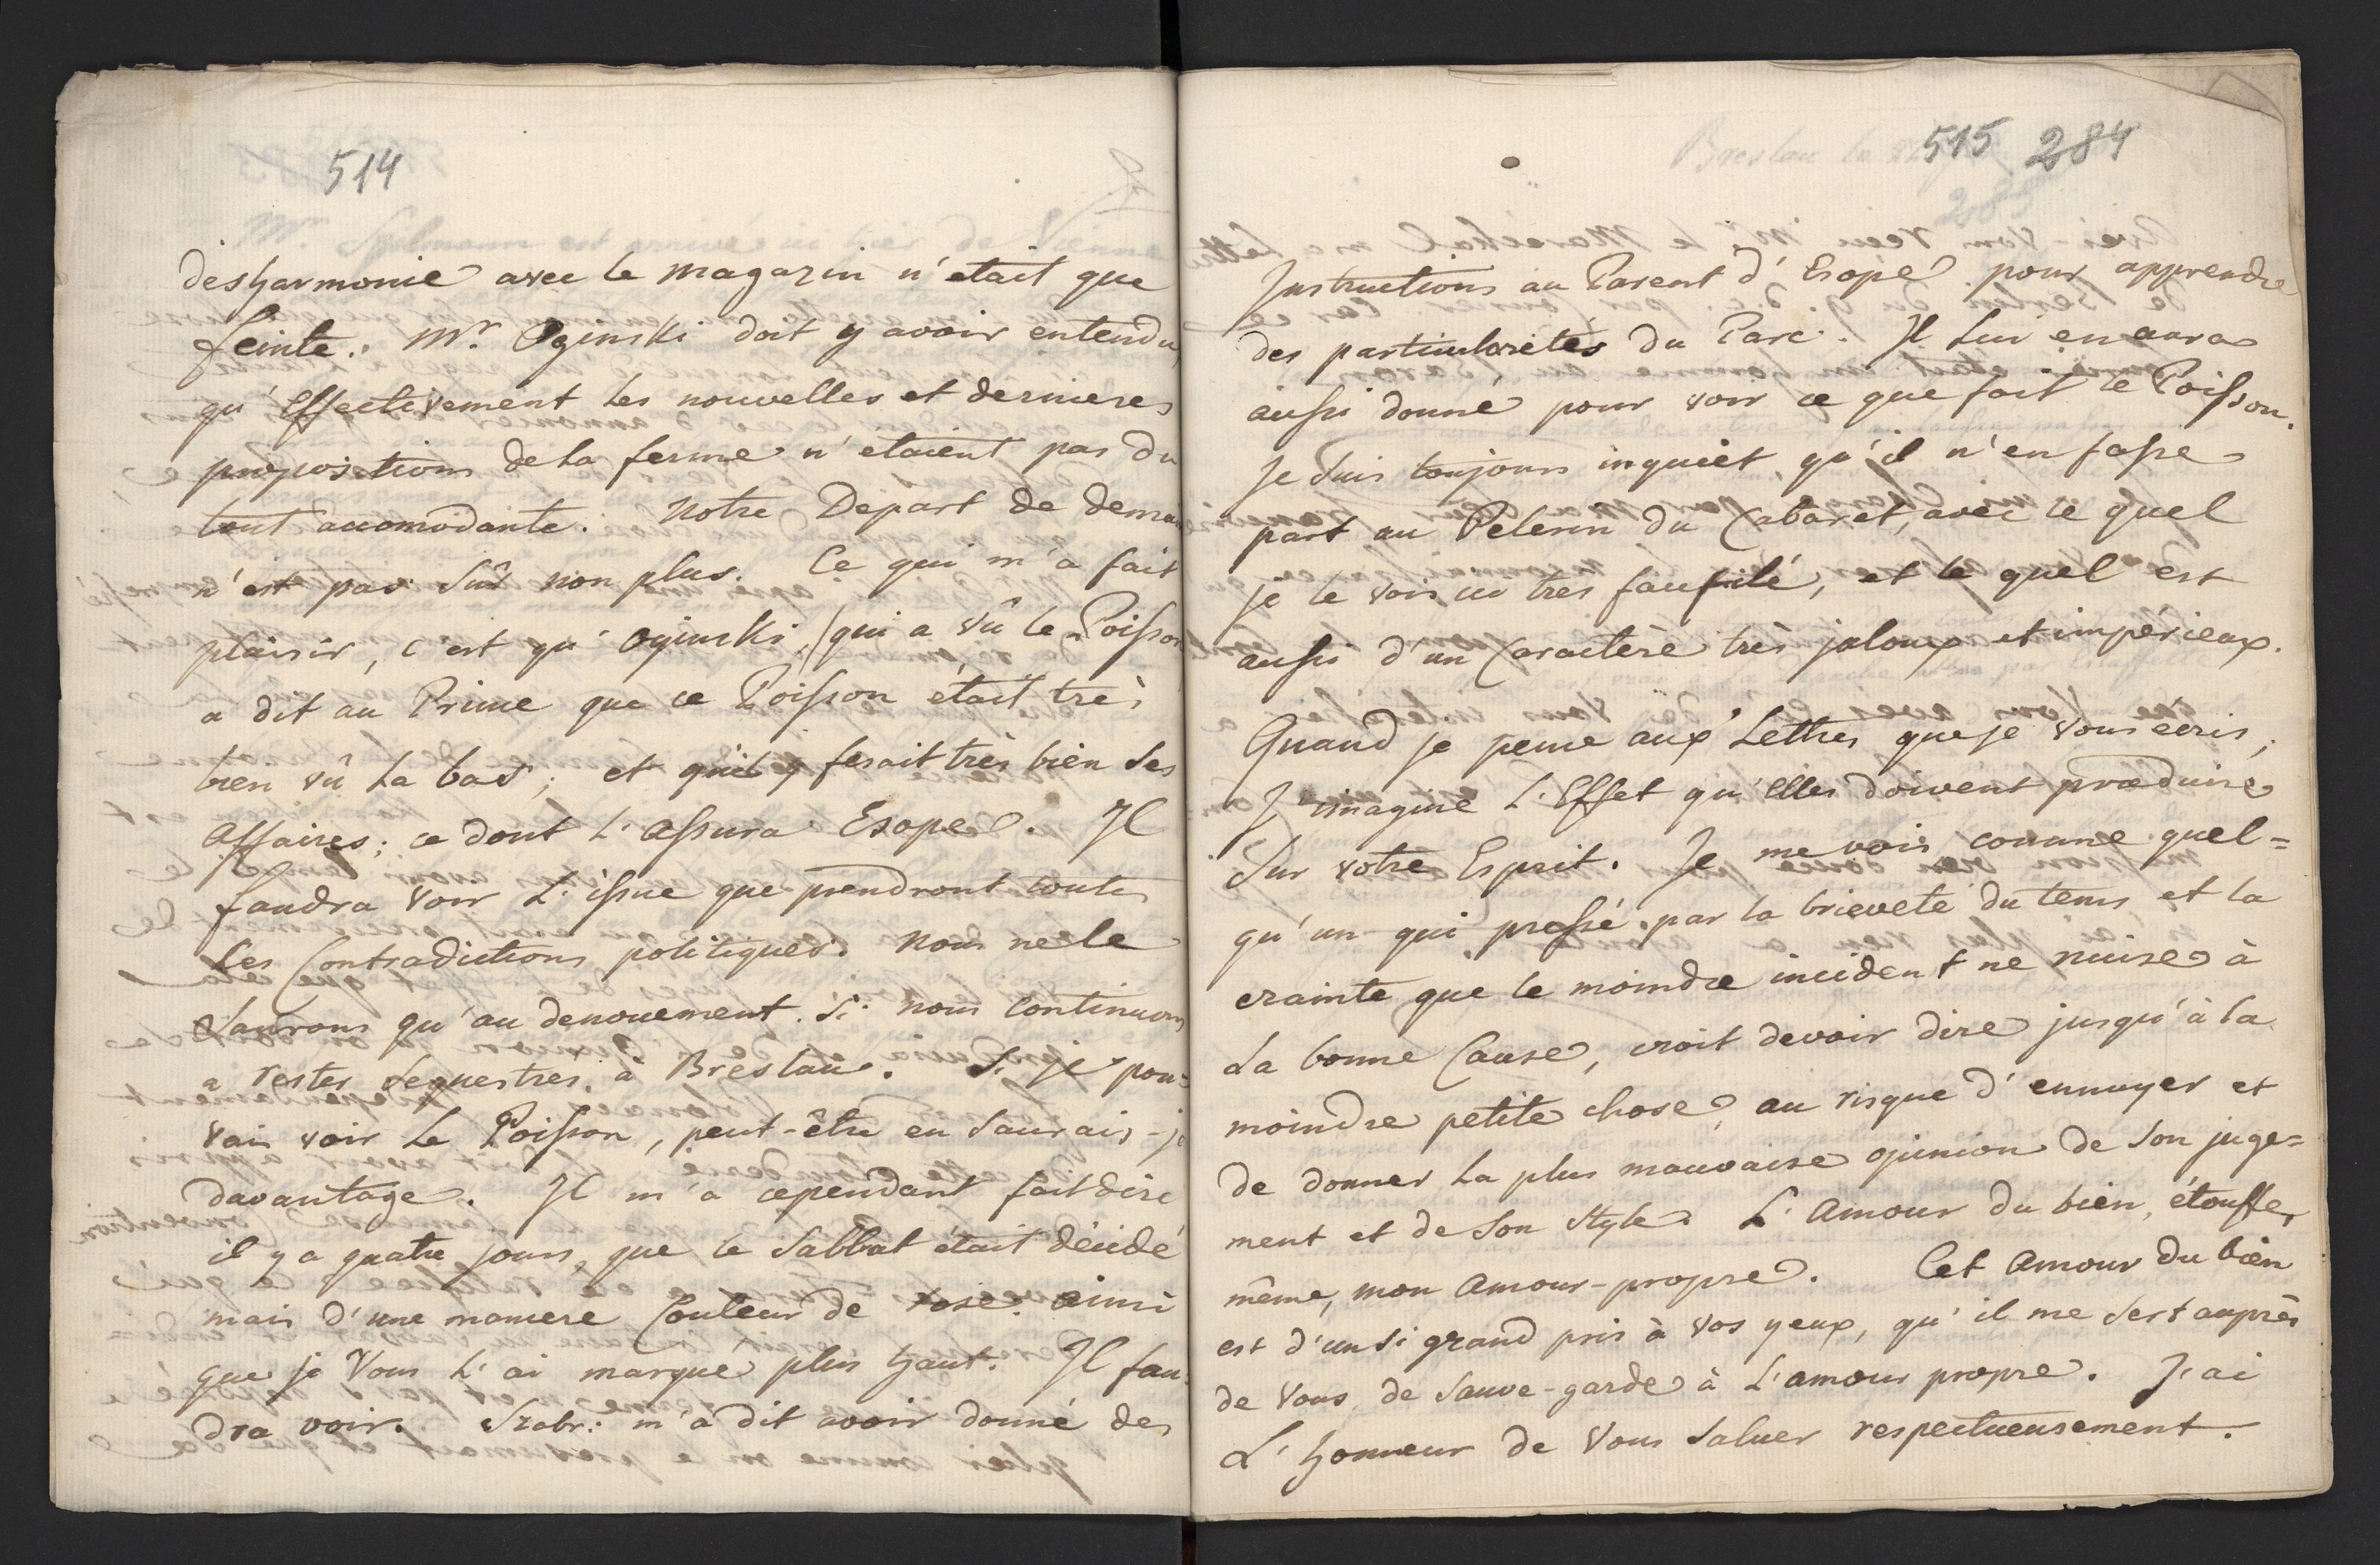 514
desharmonie avec le magazin n'etait que
feinte. Mr. Oginski doit y avoir entendu,
qu'Effectivement les nouvelles et dernieres
propositions de la ferme n'etaient pas du
tout accomodante. Notre Depart de demain
n'est pas sûr non plus. Ce qui m'a fait
plaisir, c'est qu'Oginski, (qui a vû le Poisson
a dit au Prime que ce Poisson était très
bien vû la bas; et qu'il y ferait très bien ses
affaires; ce dont l'assura Esope. Il
faudra voir l'issue que prendront toutes
les Contradictions politiques. Nous ne le
saurons qu'au denouement. Si nous continuons
a rester sequestres à Breslau. Si je pou-
vais voir le Poisson, peut-être en saurais-je
davantage. Il m'a cependant fait dire
il y a quatre jours, que le Sabbat était décidé
mais d'une maniere Couleur de rose. ainsi
que je Vous l'ai marqué plus haut. Il fau-
dra voir. Szabr: m'a dit avoir donné des
515 284
Instructions au Parent d'Esope pour apprendre
des particularités du Parc. Il lui en aura
aussi donné pour voir ce que fait le Poisson.
Je suis toujours inquiet, qu'il n'en fasse
part au Pelerin du Cabaret, avec le quel
je le vois ici tres faufilé, et le quel est
aussi d'un Caractère très jaloux et impérieux.
Quand je pense aux Lettres que je vous écris,
J'imagine l'Effet qu'elles doivent produire
sur votre Esprit. Je me vois comme quel=
qu'un qui pressé par la brieveté du tems et la
crainte que le moindre incident ne nuise à
la bonne Cause, croit devoir dire jusqu'à la
moindre petite chose, au risque d'ennuyer et
de donner la plus mauvaise opinion de son juge=
ment et de son style. L'Amour du bien, étouffe,
même, mon Amour-propre. Cet Amour du bien
est d'un si grand prix à vos yeux, qu'il me sert auprès
de Vous, de sauve-garde à l'amour propre. J'ai
L'honneur de Vous saluer respectueusement.